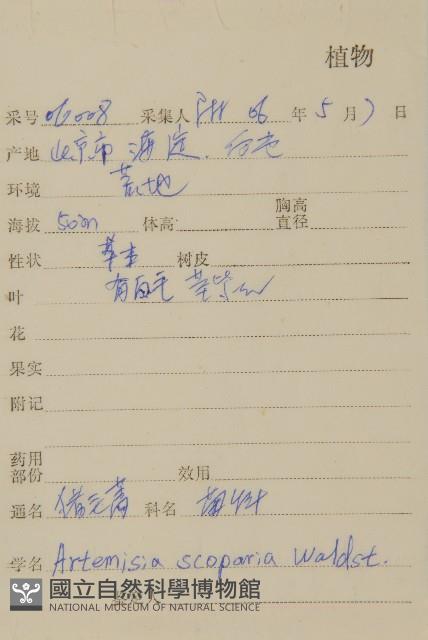 植物
采号 06008 采集人 06 年 5 月 7 日
产地 北京市 海淀.
环境 荒地
海拔 50m 体高 胸高直径
性状 草本 树皮
叶 有白毛 茎紫红
花
果实
附记
药用部份 效用
通名 猪毛蒿 科名 菊科
学名 Artemisia scoparia Waldst.
國立自然科學博物館
NATIONAL MUSEUM OF NATURAL SCIENCE